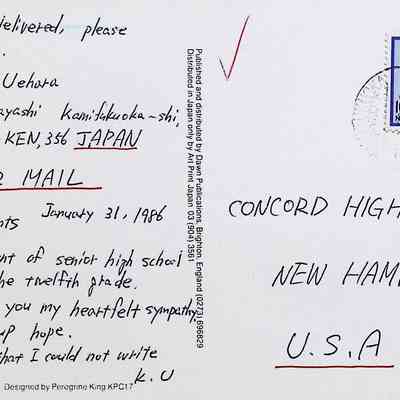 delivered, please
Uehara
ayashi Kamifukuoka-shi,
KEN, 356 JAPAN
MAIL
nts January 31, 1986
nt of senior high school
he twelfth grade.
you my heartfelt sympathy.
up hope.
that I could not write
K.U
Designed by Peregrine King KPC17
Published and distributed by Dawn Publications, Brighton, England (0273) 696829
Distributed in Japan only by Art Print Japan 03 (904) 3561
CONCORD HIGH
NEW HAM
U.S.A